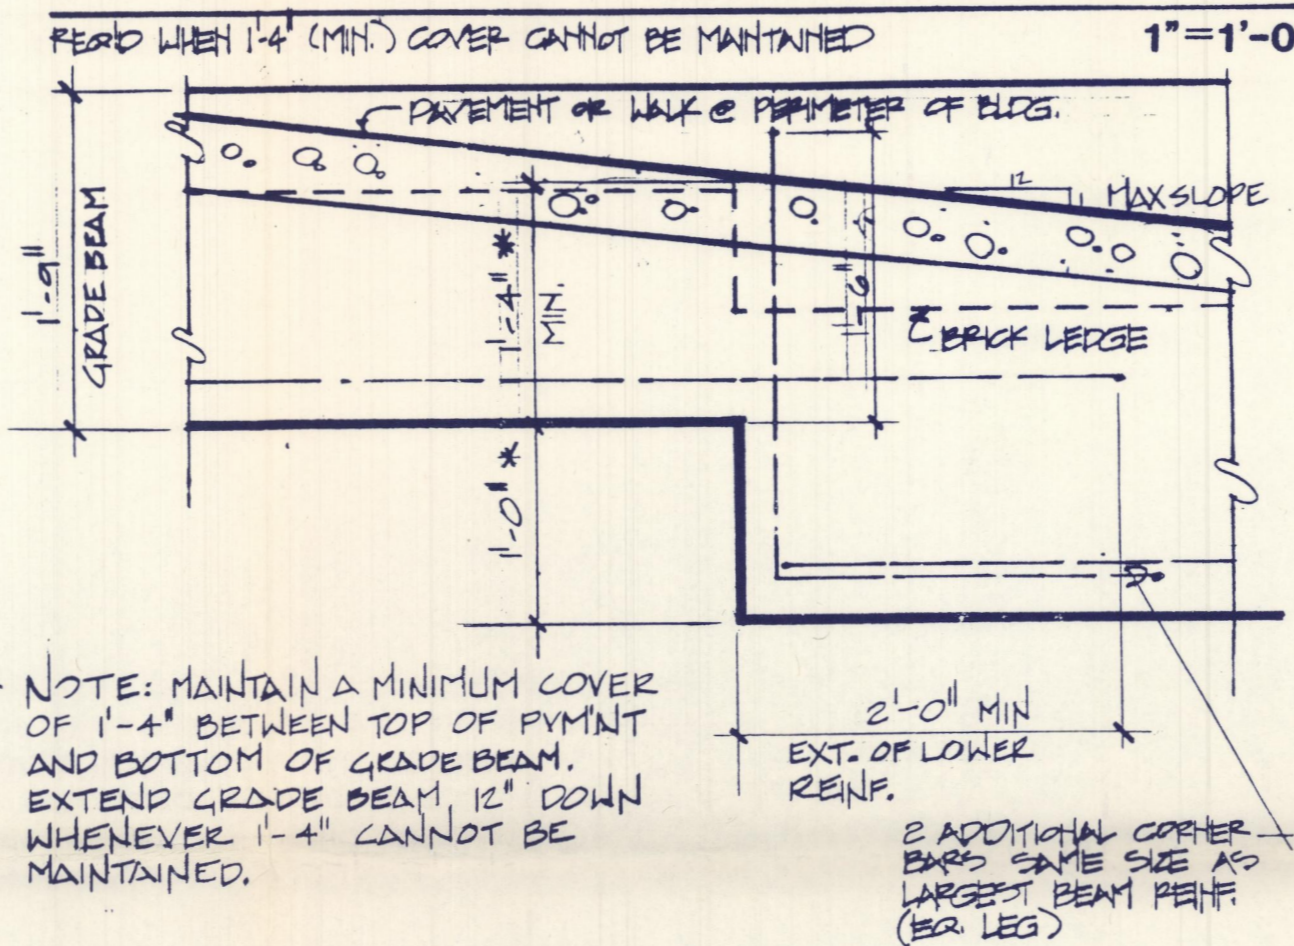 REQ'D WHEN 1'-4" (MIN.) COVER CANNOT BE MAINTAINED
1"=1'-0
PAVEMENT OR WALK @ PERIMETER OF BLDG.
12
1
MAX SLOPE
1'-9"
GRADE BEAM
1'-4" *
MIN.
1'-6"
BRICK LEDGE
1'-0" *
NOTE: MAINTAIN A MINIMUM COVER
OF 1'-4" BETWEEN TOP OF PVM'NT
AND BOTTOM OF GRADE BEAM.
EXTEND GRADE BEAM 12" DOWN
WHENEVER 1'-4" CANNOT BE
MAINTAINED.
2'-0" MIN
EXT. OF LOWER
REINF.
2 ADDITIONAL CORNER
BARS SAME SIZE AS
LARGEST BEAM REINF.
(EQ. LEG)